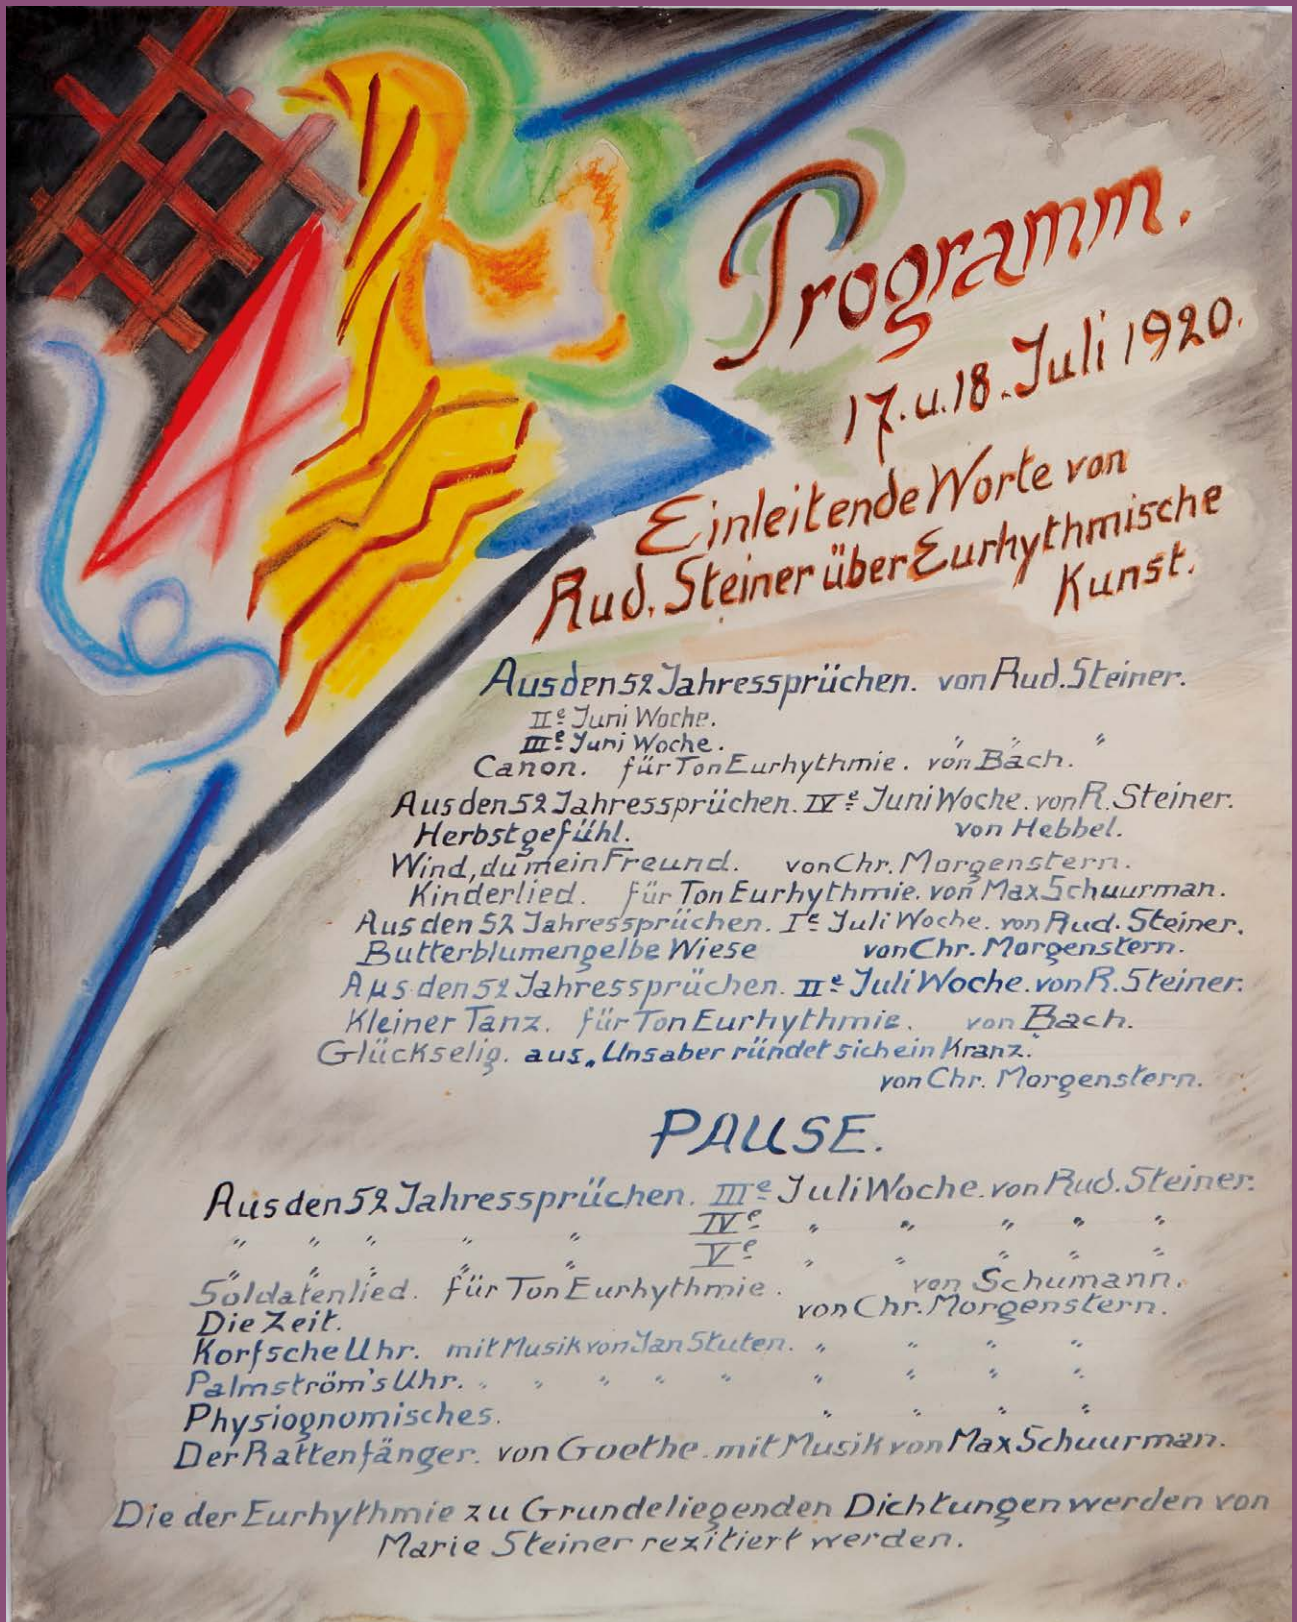 Programm.
17. u. 18. Juli 1920.
Einleitende Worte von
Rud. Steiner über Eurhythmische
Kunst.
Aus den 52 Jahressprüchen. von Rud. Steiner.
IIe Juni Woche.
IIIe Juni Woche. " " "
Canon. für Ton Eurhythmie. von Bach.
Aus den 52 Jahressprüchen. IVe Juni Woche. von R. Steiner.
Herbstgefühl. von Hebbel.
Wind, du mein Freund. von Chr. Morgenstern.
Kinderlied. für Ton Eurhythmie. von Max Schuurman.
Aus den 52 Jahressprüchen. Ie Juli Woche. von Rud. Steiner.
Butterblumengelbe Wiese von Chr. Morgenstern.
Aus den 52 Jahressprüchen. IIe Juli Woche. von R. Steiner.
Kleiner Tanz. für Ton Eurhythmie. von Bach.
Glückselig. aus „Unsaber ründet sich ein Kranz."
von Chr. Morgenstern.
PAUSE.
Aus den 52 Jahressprüchen. IIIe Juli Woche. von Rud. Steiner.
" " " " " IVe " " " " "
" " " " " Ve " " " " "
Soldatenlied. für Ton Eurhythmie. von Schumann.
Die Zeit. von Chr. Morgenstern.
Korfsche Uhr. mit Musik von Jan Stuten. " " " "
Palmström's Uhr. " " " " " " " " "
Physiognomisches. " " " "
Der Rattenfänger. von Goethe. mit Musik von Max Schuurman.
Die der Eurhythmie zu Grundeliegenden Dichtungen werden von
Marie Steiner rezitiert werden.